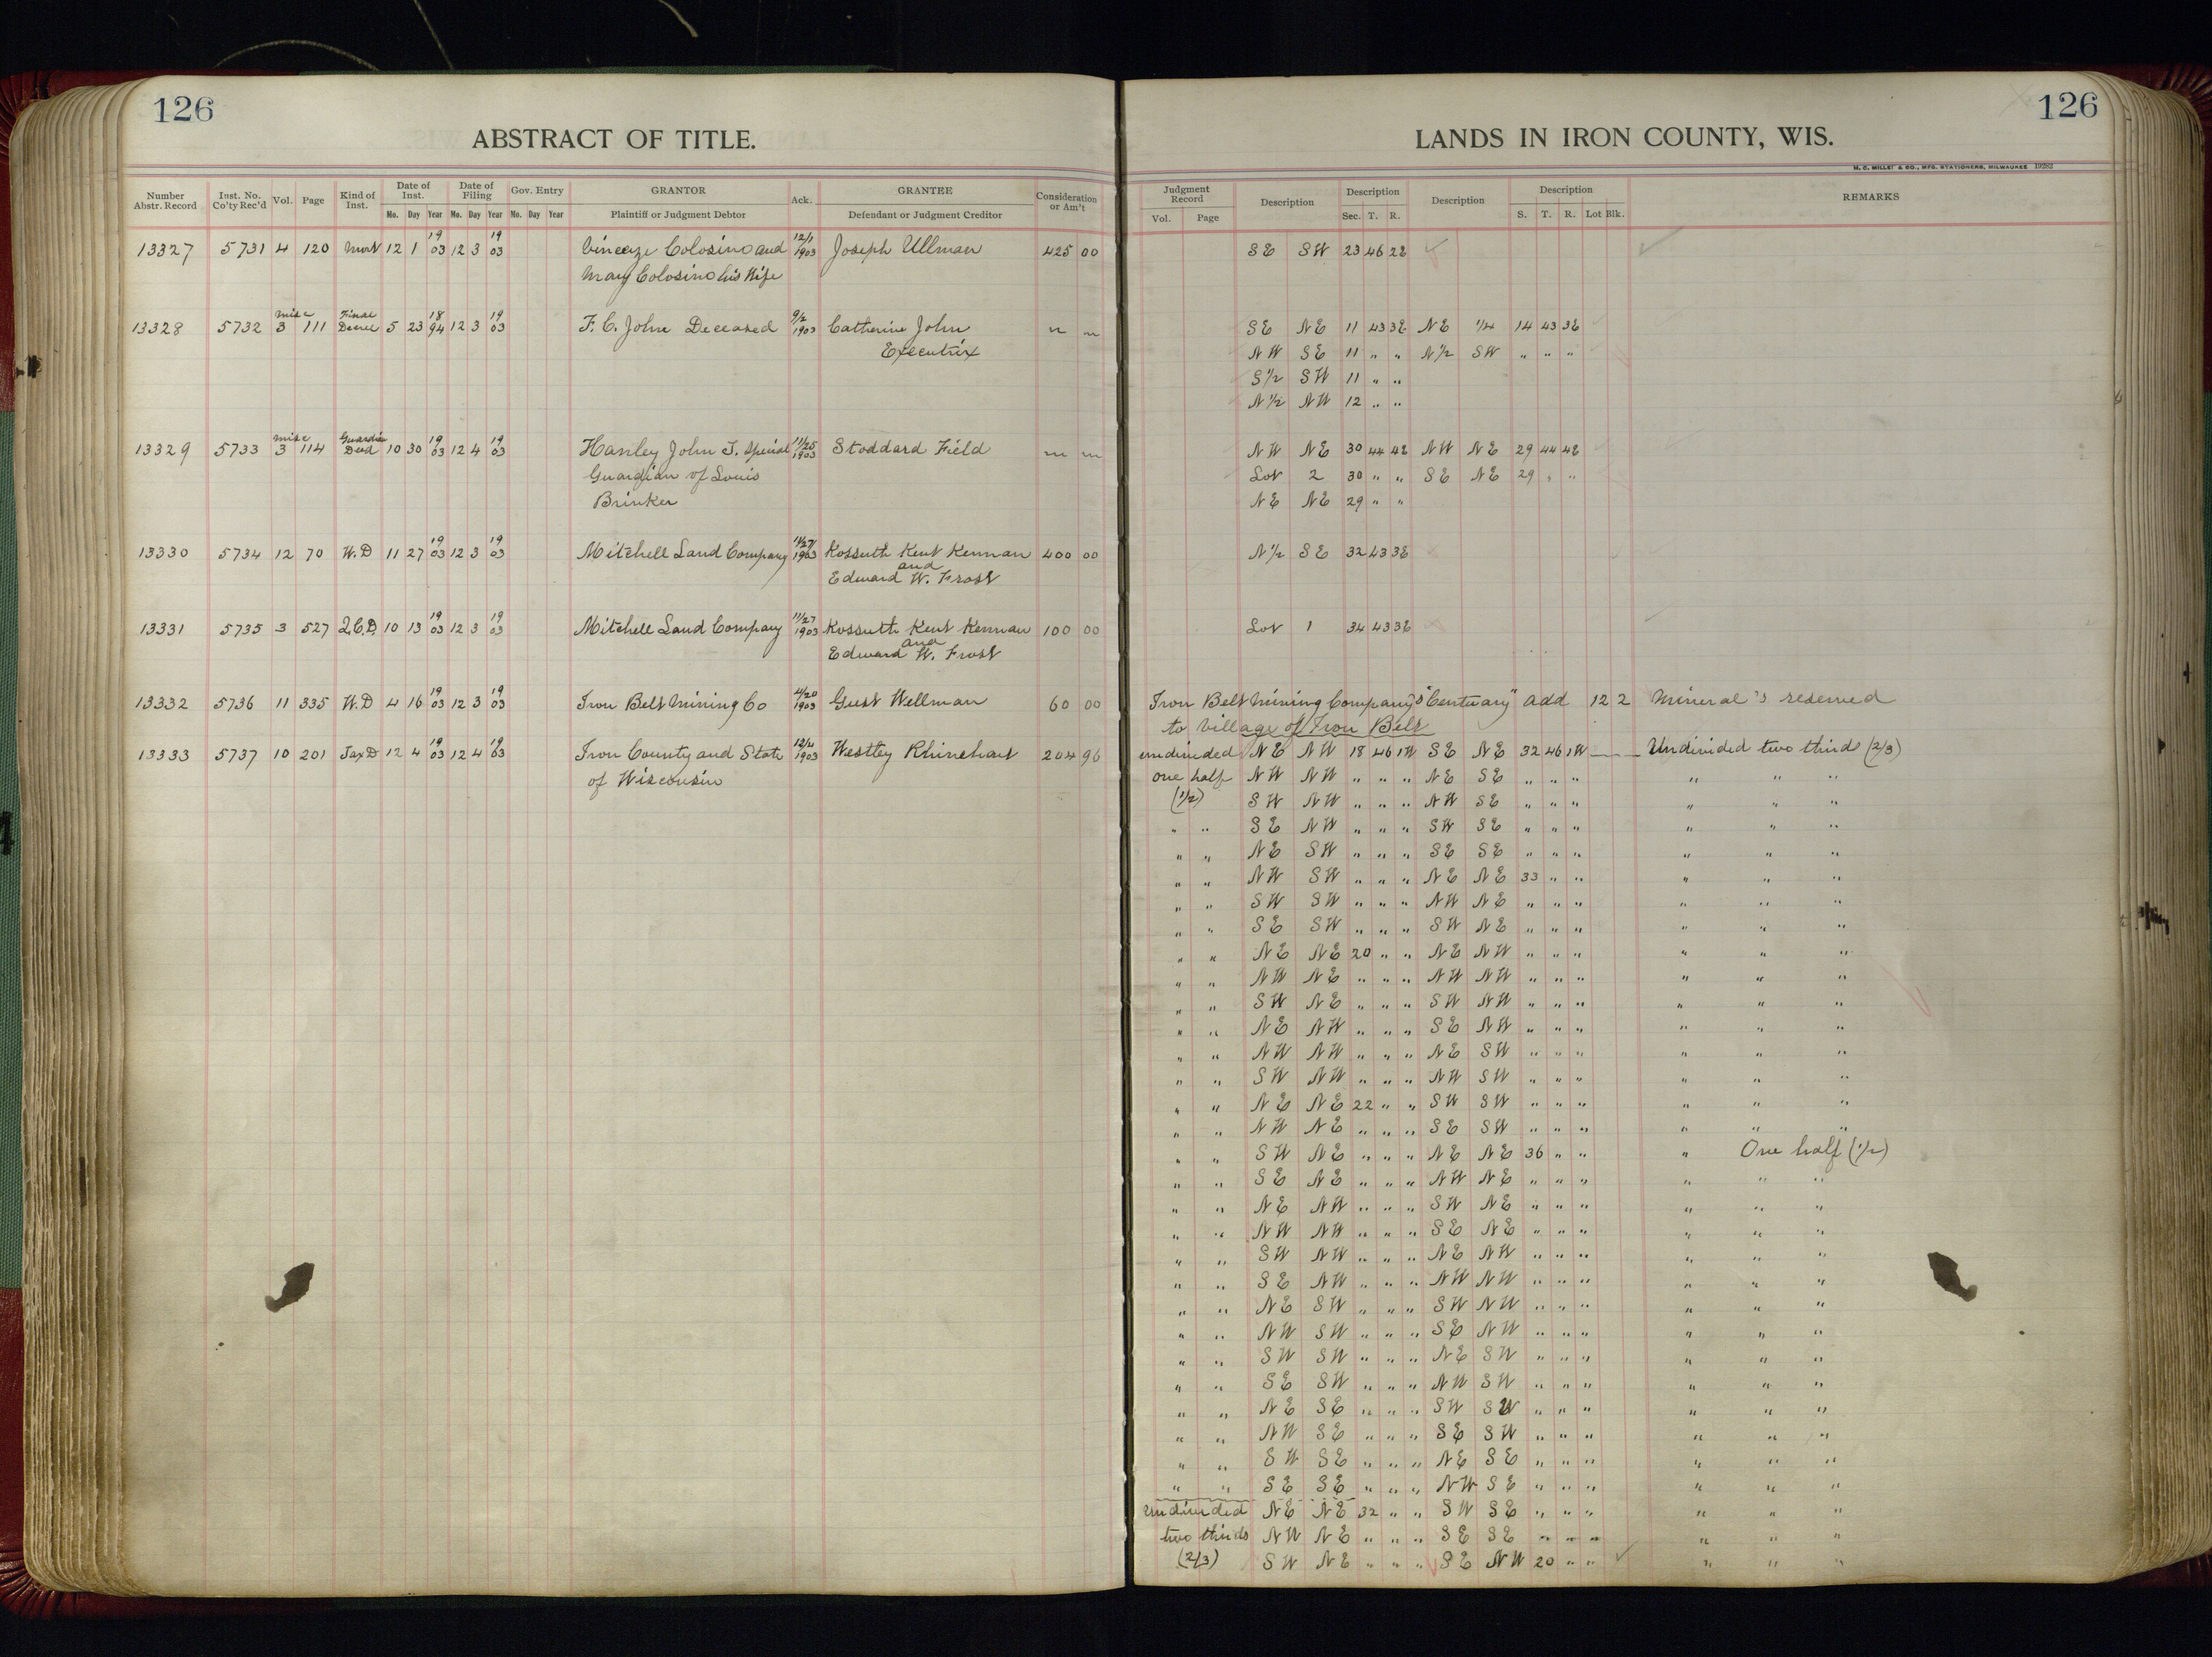 126
ABSTRACT OF TITLE.
Number Abstr. Record | Inst. No. Co'ty Rec'd | Vol. | Page | Kind of Inst. | Date of Inst. Mo. Day Year | Date of Filing Mo. Day Year | Gov. Entry Mo. Day Year | GRANTOR Plaintiff or Judgment Debtor | Ack. | GRANTEE Defendant or Judgment Creditor | Consideration or Am't
13327 5731 4 120 Mort 12 1 19 03 12 3 19 03 Vincenze Colosino and 12/1 1903 Joseph Ullman 425 00
Mary Colosino his Wife
13328 5732 Misc 3 111 Final Decree 5 23 18 94 12 3 19 03 F. C. John Deceased 9/2 1903 Catherine John " "
Executrix
13329 5733 Misc 3 114 Guardian Deed 10 30 19 03 12 4 19 03 Hanley John J. Special 11/25 1903 Stoddard Field " "
Guardian of Louis
Brinker
13330 5734 12 70 W.D 11 27 19 03 12 3 19 03 Mitchell Land Company 11/27 1903 Kossuth Kent Kennan 400 00
and
Edward W. Frost
13331 5735 3 527 Q.C.D. 10 13 19 03 12 3 19 03 Mitchell Land Company 11/27 1903 Kossuth Kent Kennan 100 00
and
Edward W. Frost
13332 5736 11 335 W.D 4 16 19 03 12 3 19 03 Iron Belt Mining Co 4/20 1903 Gust Wellman 60 00
13333 5737 10 201 Tax D 12 4 19 03 12 4 19 03 Iron County and State 12/4 1903 Westley Rhinehart 204 96
of Wisconsin
126
LANDS IN IRON COUNTY, WIS.
H. C. MILLER & CO., MFG. STATIONERS, MILWAUKEE 19282
Judgment Record Vol. Page | Description | Description Sec. T. R. | Description | Description S. T. R. Lot Blk. | REMARKS
SE SW 23 46 2E
SE NE 11 43 3E NE 1/4 14 43 3E
NW SE 11 " " N1/2 SW " " "
S1/2 SW 11 " "
N1/2 NW 12 " "
NW NE 30 44 4E NW NE 29 44 4E
Lot 2 30 " " SE NE 29 " "
NE NE 29 " "
N1/2 SE 32 43 3E
Lot 1 34 43 3E
Iron Belt Mining Company's "Centuary" Add 12 2 Mineral's reserved
to Village of Iron Belt
undivided NE NW 18 46 1W SE NE 32 46 1W Undivided two thirds (2/3)
one half NW NW " " " NE SE " " " " " "
(1/2) SW NW " " " NW SE " " " " " "
" " SE NW " " " SW SE " " " " " "
" " NE SW " " " SE SE " " " " " "
" " NW SW " " " NE NE 33 " " " " "
" " SW SW " " " NW NE " " " " " "
" " SE SW " " " SW NE " " " " " "
" " NE NE 20 " " NE NW " " " " " "
" " NW NE " " " NW NW " " " " " "
" " SW NE " " " SW NW " " " " " "
" " NE NW " " " SE NW " " " " " "
" " NW NW " " " NE SW " " " " " "
" " SW NW " " " NW SW " " " " " "
" " NE NE 22 " " SW SW " " " " " "
" " NW NE " " " SE SW " " " " " "
" " SW NE " " " NE NE 36 " " " One half (1/2)
" " SE NE " " " NW NE " " " " " "
" " NE NW " " " SW NE " " " " " "
" " NW NW " " " SE NE " " " " " "
" " SW NW " " " NE NW " " " " " "
" " SE NW " " " NW NW " " " " " "
" " NE SW " " " SW NW " " " " " "
" " NW SW " " " SE NW " " " " " "
" " SW SW " " " NE SW " " " " " "
" " SE SW " " " NW SW " " " " " "
" " NE SE " " " SW SW " " " " " "
" " NW SE " " " SE SW " " " " " "
" " SW SE " " " NE SE " " " " " "
" " SE SE " " " NW SE " " " " " "
Undivided NE NE 32 " " SW SE " " " " " "
two thirds NW NE " " " SE SE " " " " " "
(2/3) SW NE " " " SE NW 20 " " " " "